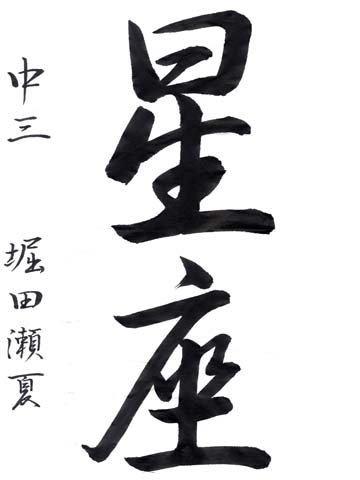 星座
中三 堀田瀬夏